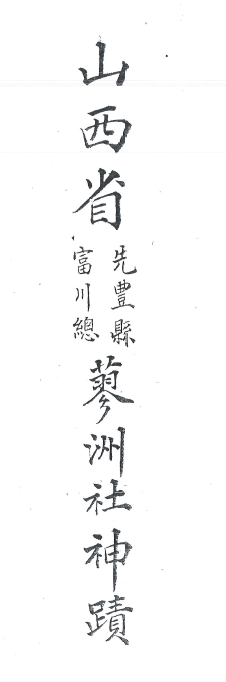 山西省
先豊縣
富川總
蓼洲社神蹟